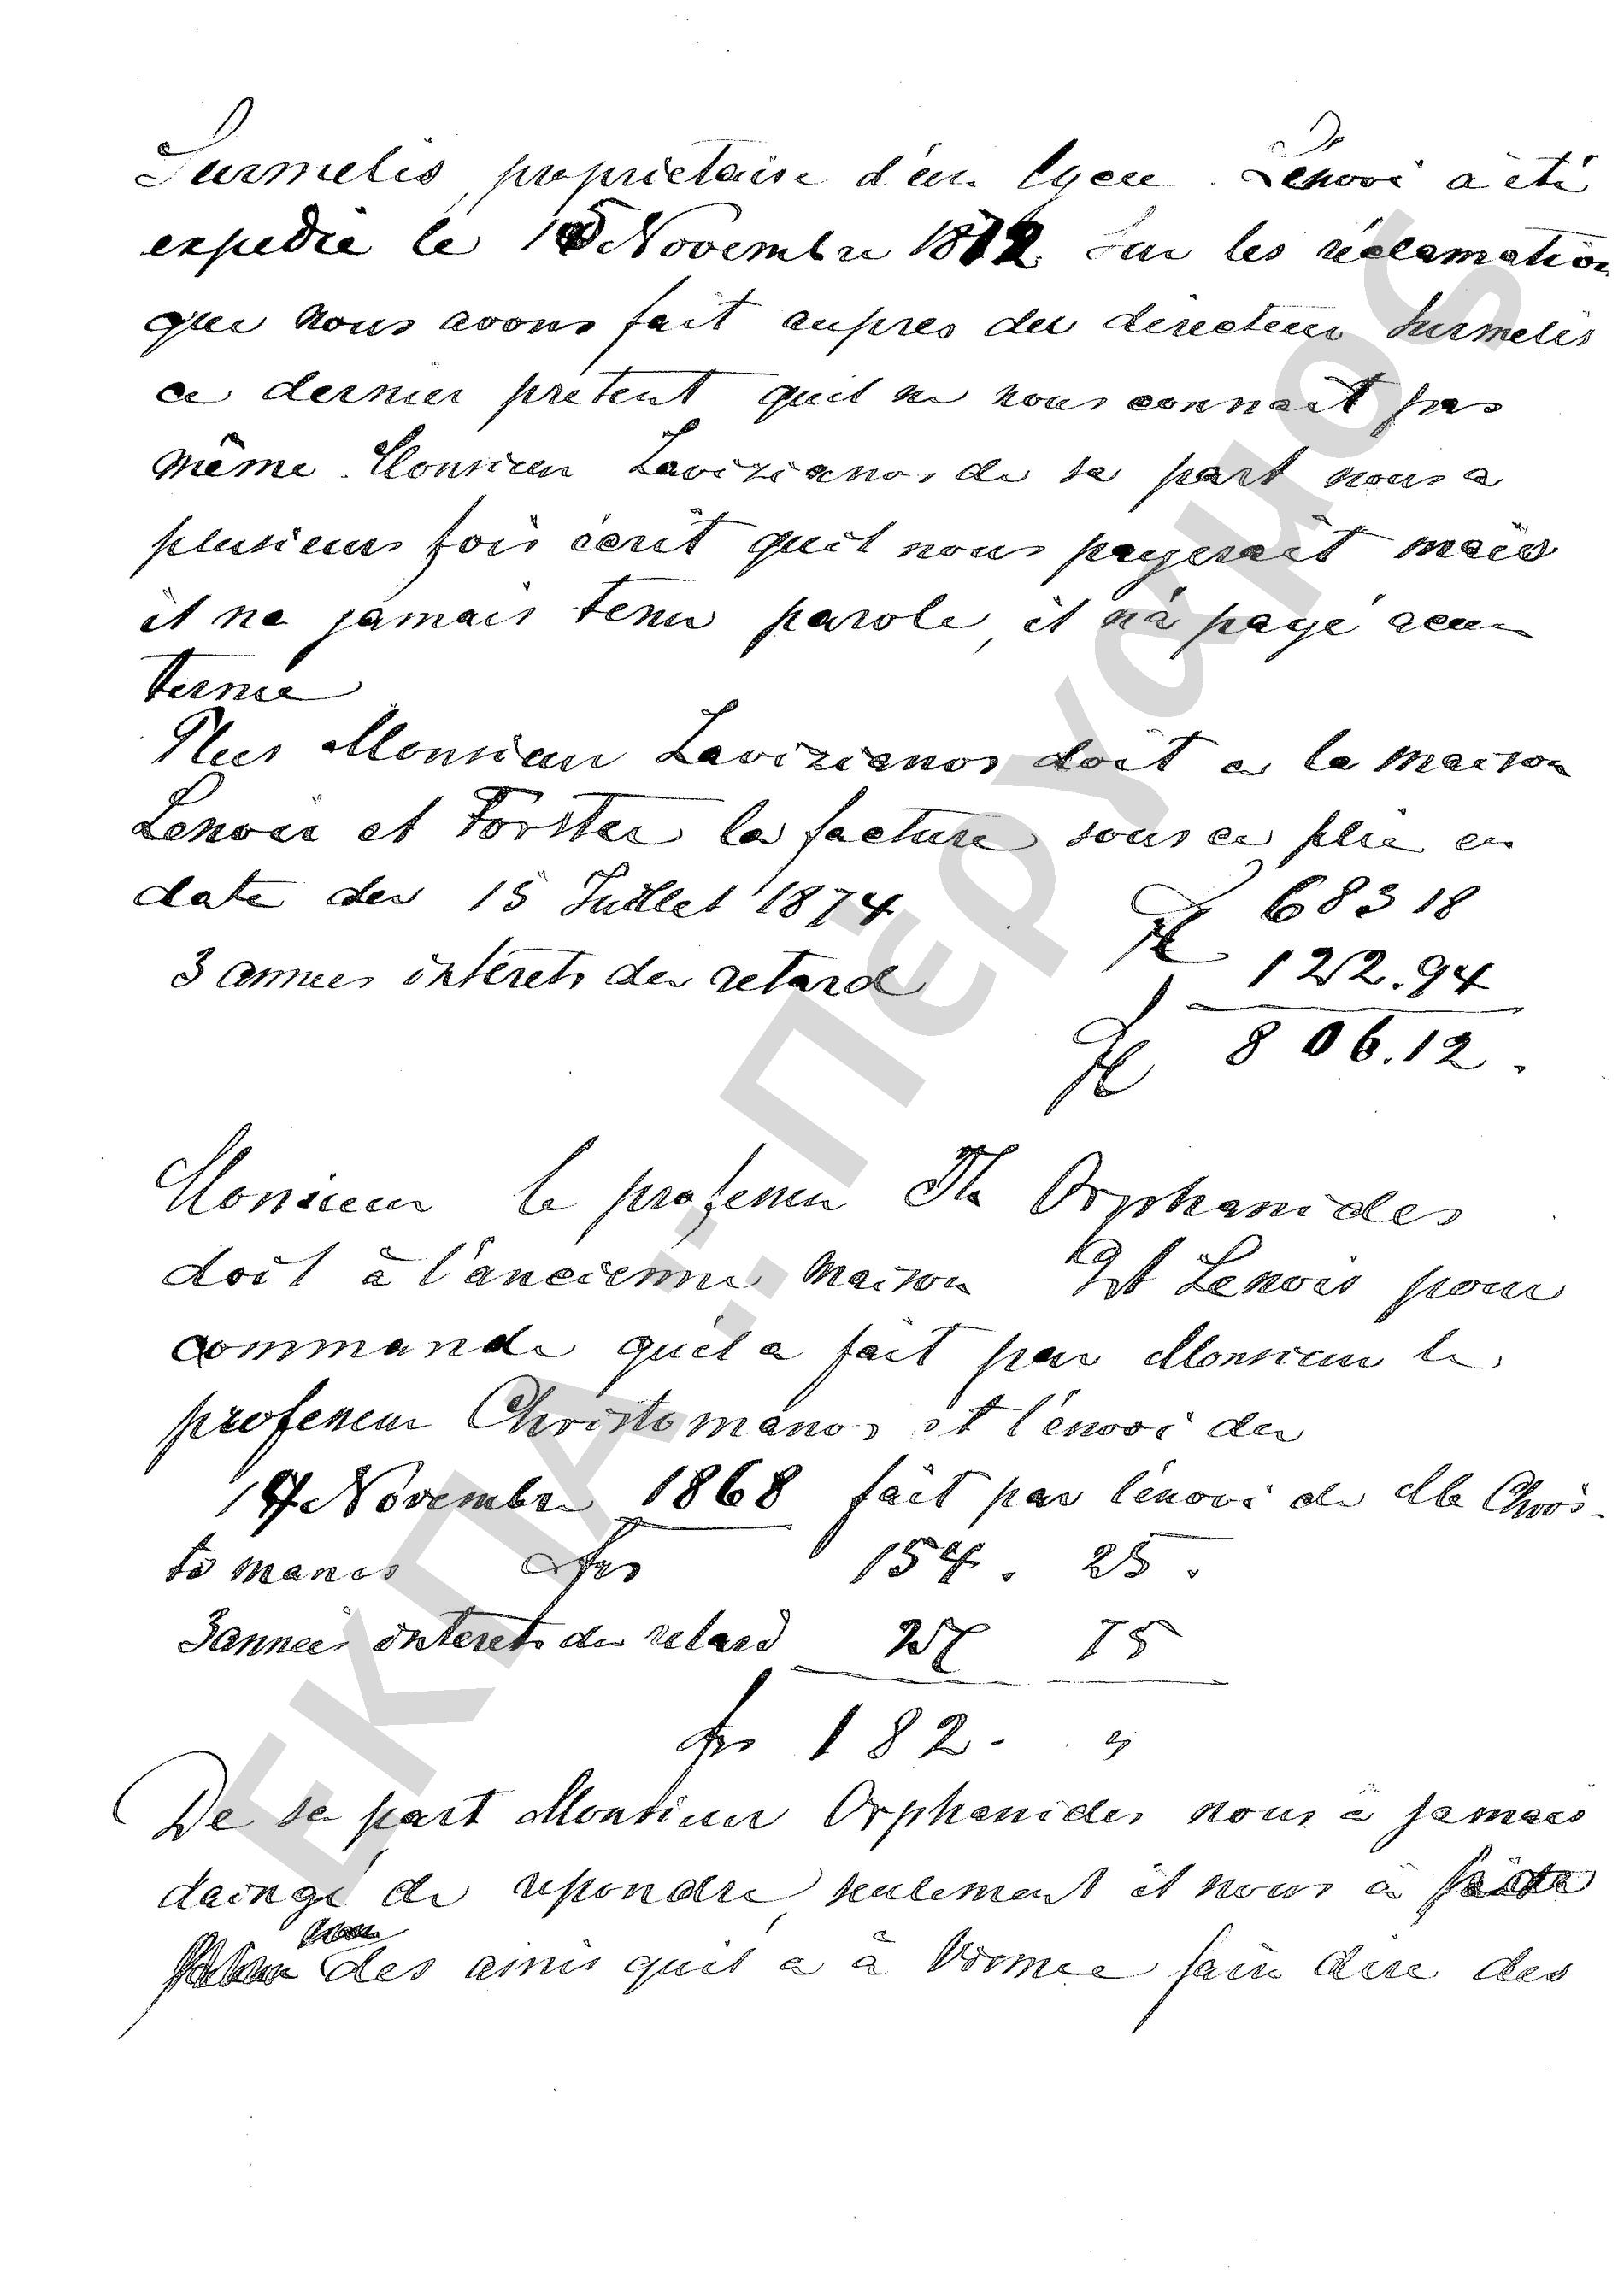 Surmelis, propriétaire d'un lycée. L'envoi a été
expedié le 15 Novembre 1872 Sur les réclamation
que nous avons fait aupres du directeur Surmelis
ce dernier pretent quil ne nous connait pas
même. Monsieur Lavizianos, de sa part nous a
plusieurs fois écrit quil nous payerait mais
il na jamais tenu parole, et n'a payé acun
terme
Plus Monsieur Lavizianos doit a la maison
Lenoir et Forster la facture sous ce plie en
date du 15 Juillet 1874 fl 683 18
3 annees intérets du retard 122.94
fl 806.12.
Monsieur le professeur Th Orphanides
doit à l'ancienne maison Lenoir pour
commande quil a fait par Monsieur le
professeur Christomanos et l'envoi du
Novembre 1868 fait par l'envoi de Mr Chris-
tomanos frs 154. 25.
3 annees interets du retard 27 75
frs 182. "
De sa part Monsieur Orphanides nous a jamais
daingé de repondre, seulement il nous a
des amis quil a à Vienne fair dire des
ΕΚΠΑ.: Πέργαμος